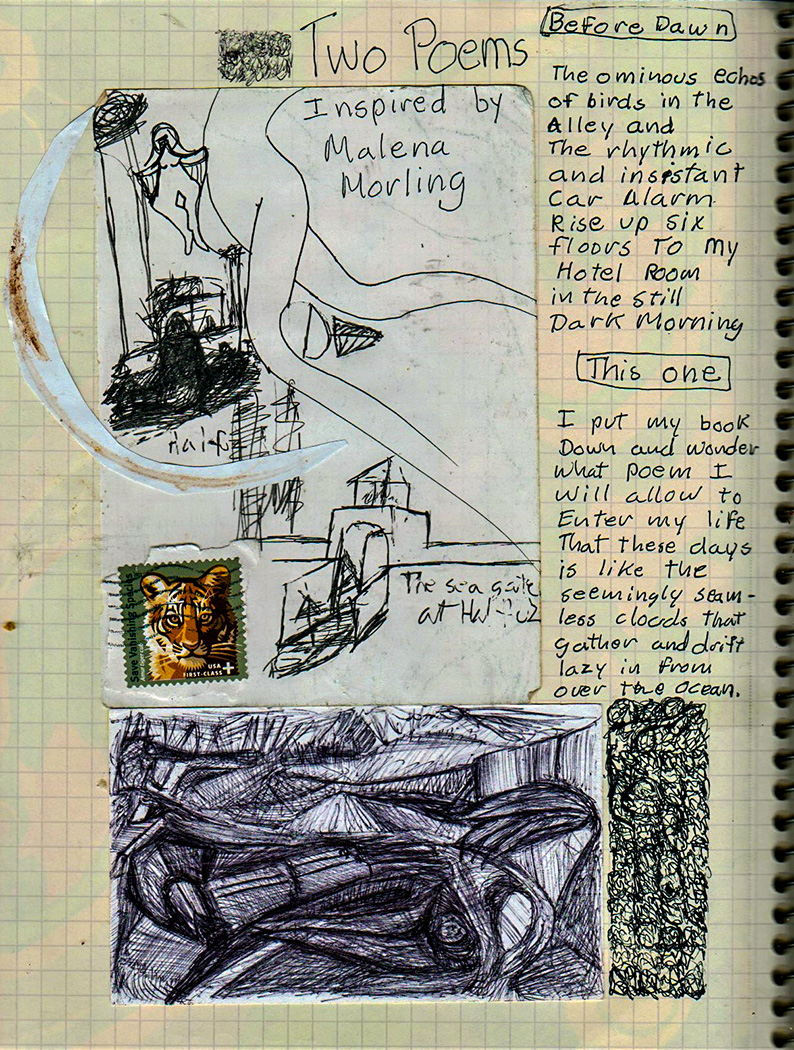 Two Poems
Inspired by
Malena
Morling
Before Dawn
The ominous echos
of birds in the
Alley and
The rhythmic
and insistant
Car Alarm
Rise up six
floors To my
Hotel Room
in the still
Dark Morning
This one
I put my book
Down and wonder
what poem I
will allow to
Enter my life
That these days
is like the
seemingly seam-
less clouds that
gather and drift
lazy in from
over the Ocean.
The sea gate
at
Save Vanishing Species
USA
FIRST-CLASS